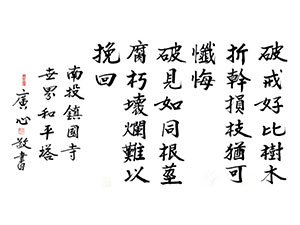 破戒好比樹木
折幹損枝猶可
懺悔
破見如同根莖
腐朽壞爛難以
挽回
南投鎮國寺
世界和平塔
廣心敬書